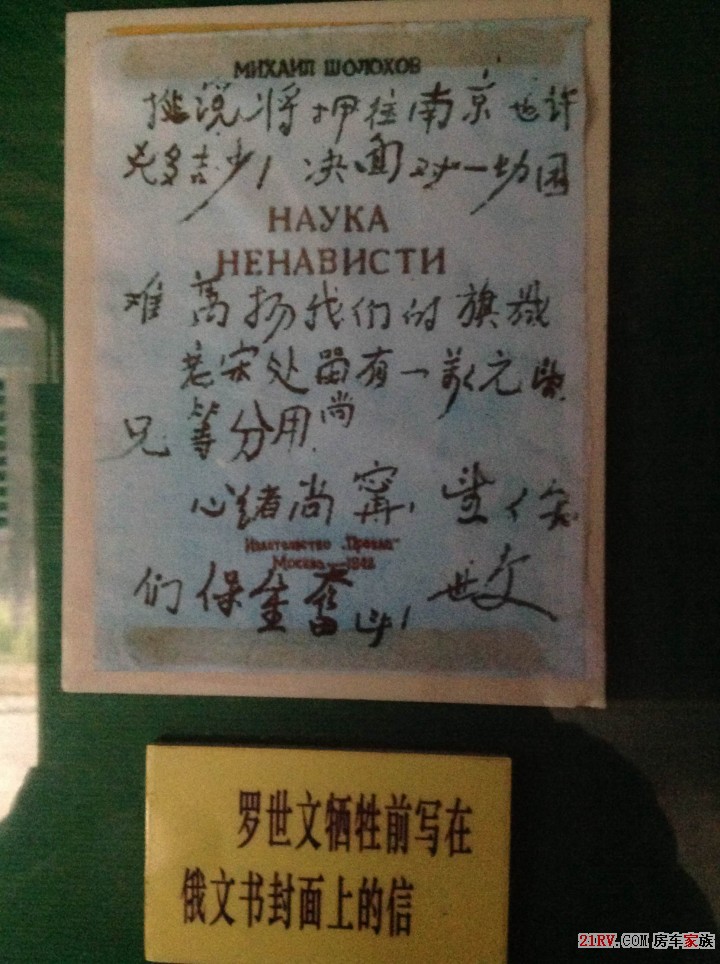 МИХАИЛ ШОЛОХОВ
据说将押往南京也许
凶多吉少！决面对一切困
НАУКА
НЕНАВИСТИ
难高扬我们的旗帜
老宋处留有一万元望
兄等分用.尚
心绪尚甯，望你
Издательство „Правда"
Москва
们保重奋斗！世文
罗世文牺牲前写在
俄文书封面上的信
21RV.COM 房车家族